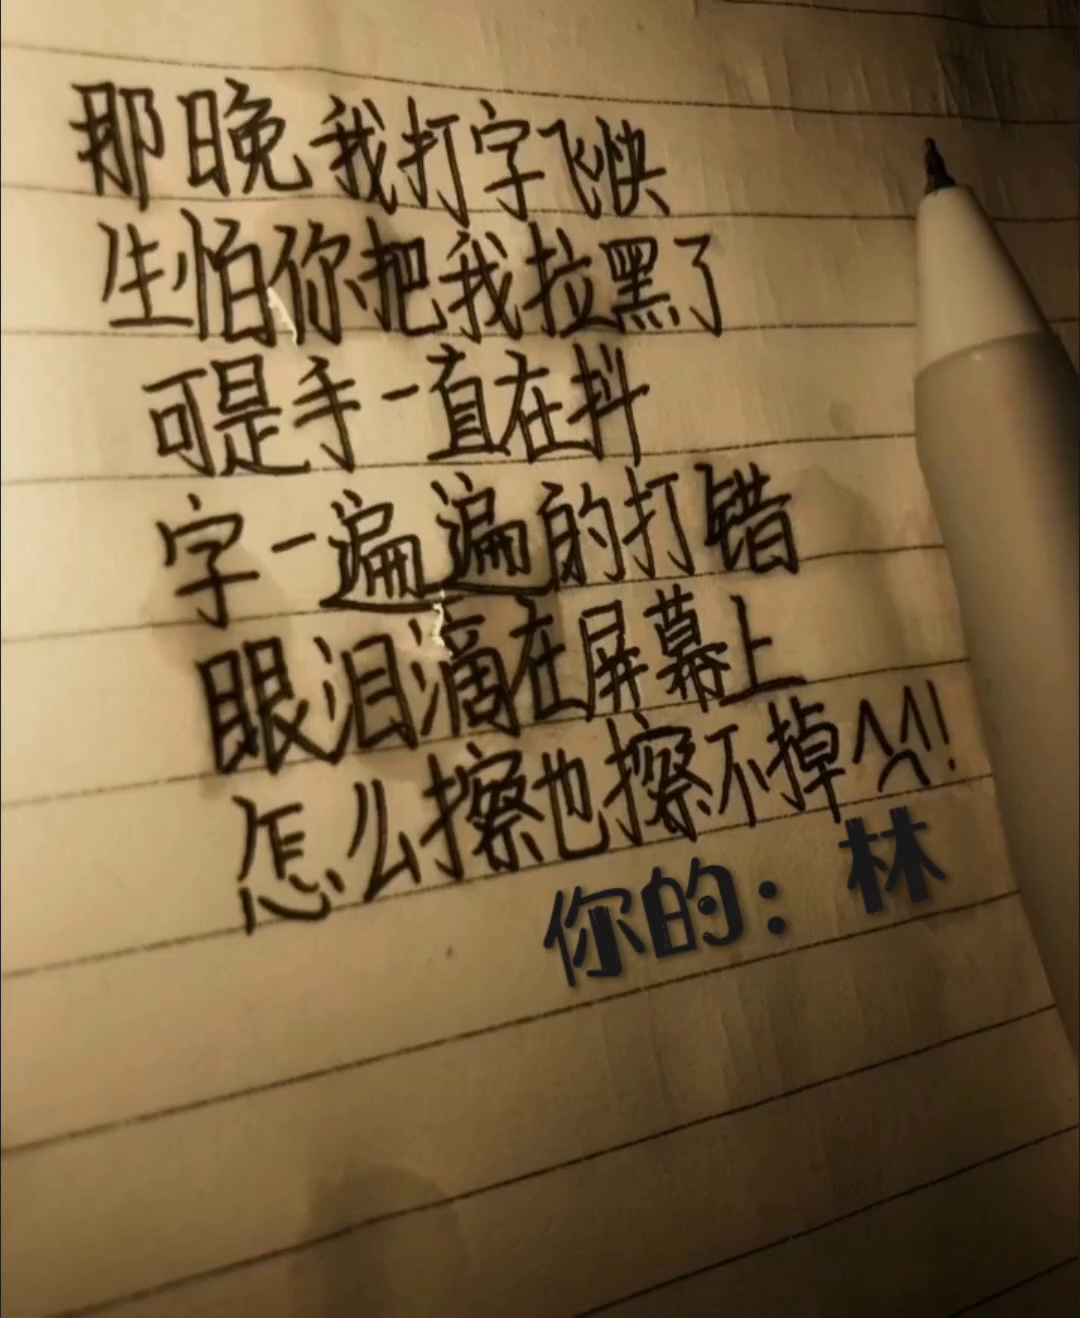 那晚我打字飞快
生怕你把我拉黑了
可是手一直在抖
字一遍遍的打错
眼泪滴在屏幕上
怎么擦也擦不掉^^!
你的：林